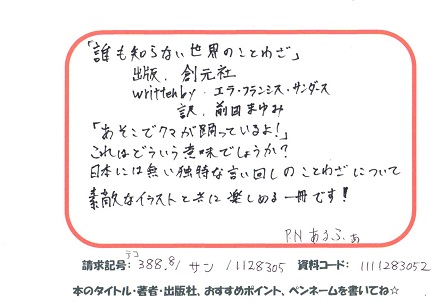 「誰も知らない世界のことわざ」
出版、創元社
written by・エラ・フランシス・サンダース
訳、前田まゆみ
「あそこでクマが踊っているよ!」
これはどういう意味でしょうか?
日本には無い独特な言い回しのことわざについて
素敵なイラストと共に楽しめる一冊です!
P.N あるふぁ
テコ
請求記号: 388.8/ サン /1128305 資料コード: 1111283052
本のタイトル・著者・出版社、おすすめポイント、ペンネームを書いてね☆